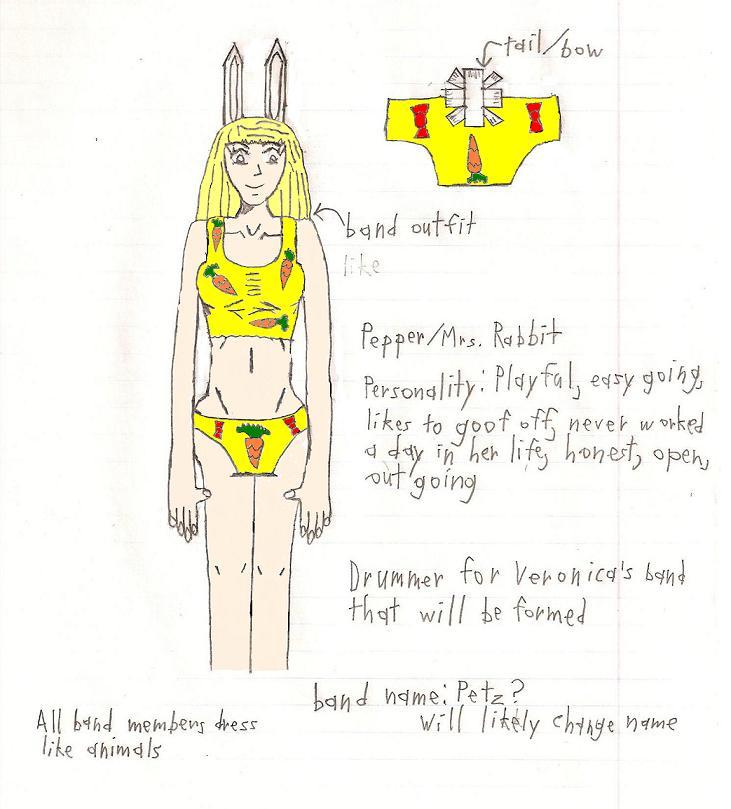 tail/bow
band outfit
like
Pepper/Mrs. Rabbit
Personality: Playful, easy going,
likes to goof off, never worked
a day in her life, honest, open,
out going
Drummer for Veronica's band
that will be formed
band name: Petz?
will likely change name
All band members dress
like animals